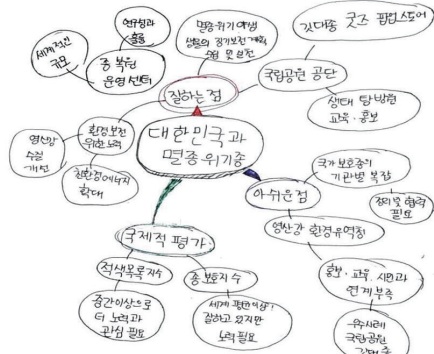 대한민국과
멸종위기종
잘하는점
종 복원
운영센터
세계적인
규모
연구성과
멸종위기 야생
생물의 장기보전 계획
수립 및 실천
국립공원 공단
깃대종 굿즈 팝업스토어
생태 탐방원
교육·홍보
환경보전
위한 노력
영산강
수질
개선
친환경에너지
확대
아쉬운점
국가 보호종의
기관별 복잡
정리 및 협력
필요
영산강 환경유역청
홍보·교육 시민과
연계부족
우수사례
국립공원
국제적 평가
적색목록 지수
중간이상으로
더 노력과
관심 필요
종보호지수
세계 평균이상
잘하고 있지만
노력필요